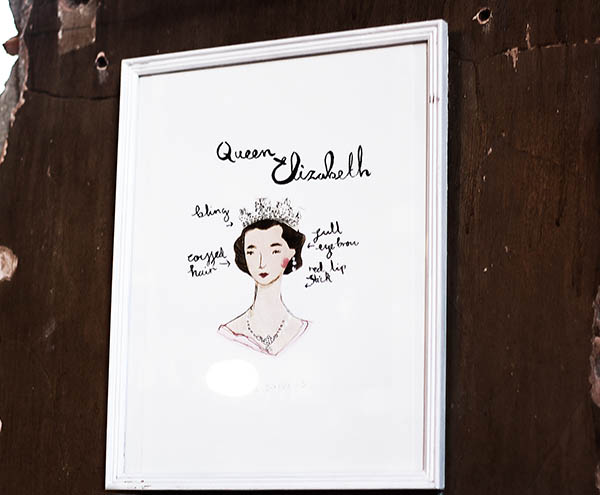 Queen Elizabeth
bling
full
eyebrow
coiffed
hair
red lip
stick